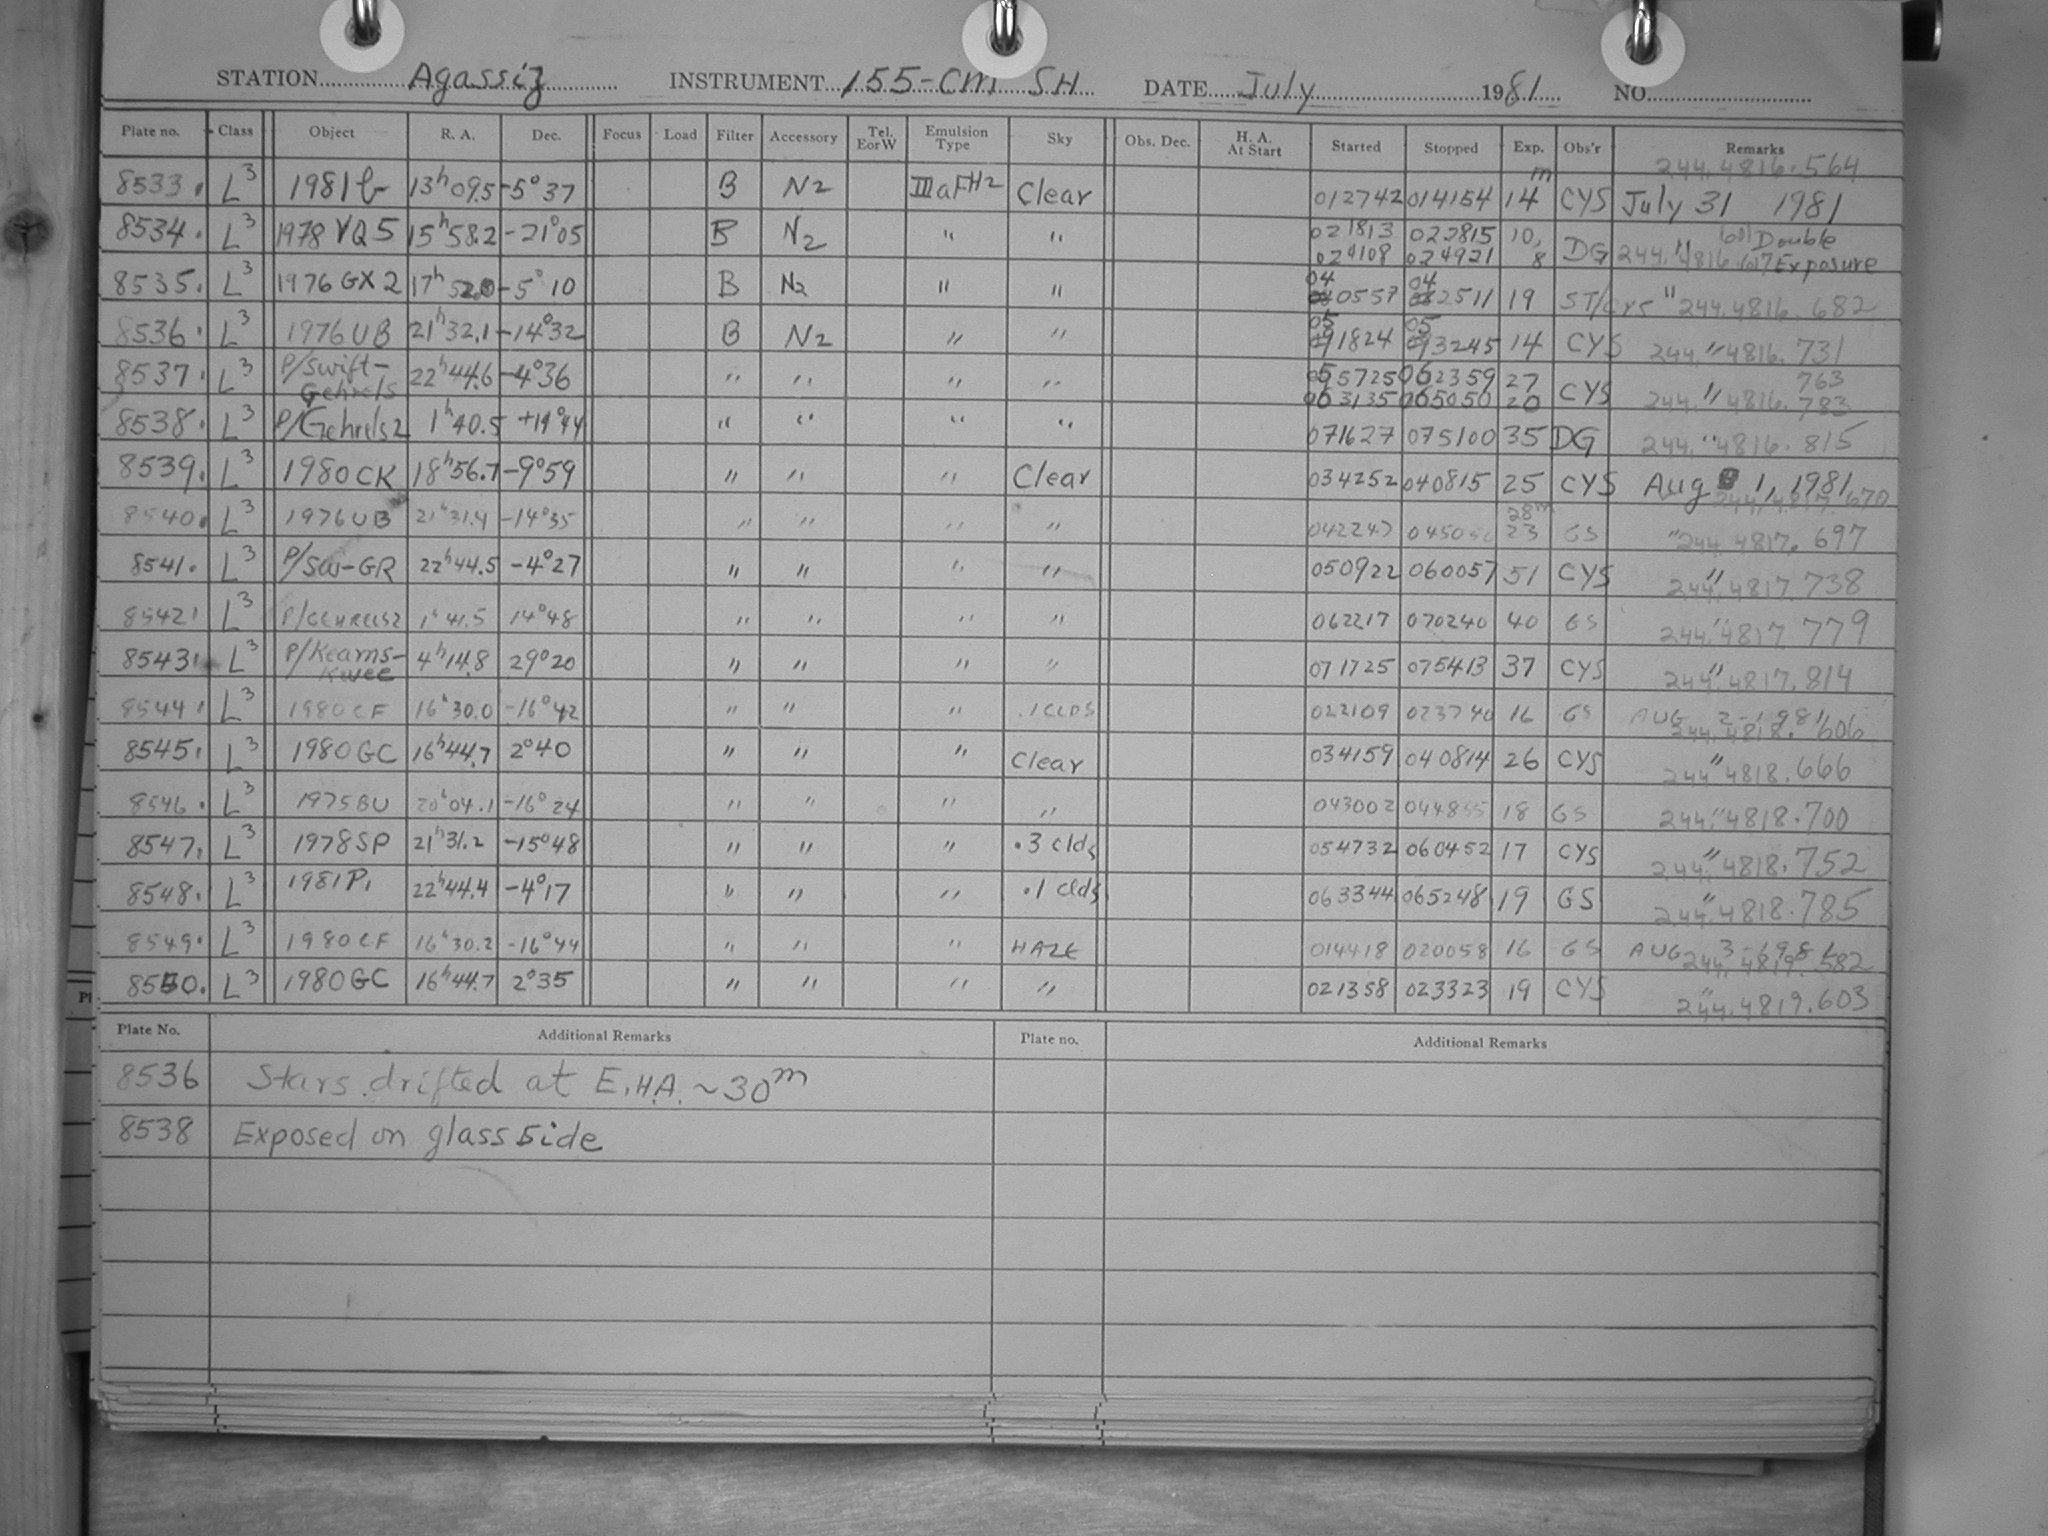 STATION Agassiz INSTRUMENT 155-cm SH DATE July 1981 NO.
Plate no. Class Object R. A. Dec. Focus Load Filter Accessory Tel. EorW Emulsion Type Sky Obs. Dec. H. A. At Start Started Stopped Exp. Obs'r Remarks
244.4816.564
8533. L3 13h09.5 -5°37 B N2 IIIaFH2 Clear 012742 014154 14m CYS July 31 1981
8534. L3 1978 VQ5 15h58.2 -21°05 B N2 " " 021813 022815 10, DG " 601 Double
024108 024921 8 244.4816.617 Exposure
8535. L3 1976 GX2 17h52.0 -5°10 B N2 " " 040557 042511 19 ST/CYS " 244.4816.682
8536. L3 1976UB 21h32.1 -14°32 B N2 " " 051824 053245 14 CYS " 244.4816.731
8537. L3 P/Swift-Gehrels 22h44.6 -4°36 " " " " 055725 062359 27 CYS " 763
063135 065050 20 244.4816.783
8538. L3 P/Gehrels2 1h40.5 " " " " 071627 075100 35 DG 244."4816.815
8539. L3 1980CK 18h56.7 -9°59 " " " Clear 034252 040815 25 CYS Aug 1, 1981
244.4817.670
8540. L3 1976UB 21h31.4 -14°35 " " " " 042247 28m 23 GS " 244.4817.697
8541. L3 P/SW-GR 22h44.5 -4°27 " " " " 050922 060057 51 CYS " 244.4817.738
8542. L3 P/GEHRELS2 1h41.5 14°48 " " " " 062217 070240 40 GS " 244.4817.779
8543. L3 P/Kearns-Kwee 4h14.8 29°20 " " " " 071725 075413 37 CYS " 244.4817.814
8544. L3 1980CF 16h30.0 -16°42 " " " .1CLDS 022109 023740 16 GS AUG 2-1981
244.4818.606
8545. L3 1980GC 16h44.7 2°40 " " " Clear 034159 040814 26 CYS " 244.4818.666
8546. L3 1975BU 20h04.1 -16°24 " " " " 043002 044855 18 GS " 244.4818.700
8547. L3 1978SP 21h31.2 -15°48 " " " .3 clds 054732 060452 17 CYS " 244.4818.752
8548. L3 1981P1 22h44.4 -4°17 " " " .1 clds 063344 065248 19 GS " 244.4818.785
8549. L3 1980CF 16h30.2 -16°44 " " " HAZE 014418 020058 16 GS AUG 3-1981
244.4819.582
8550. L3 1980GC 16h44.7 2°35 " " " " 021358 023323 19 CYS " 244.4819.603
Plate No. Additional Remarks Plate no. Additional Remarks
8536 Stars drifted at E.H.A. ~30m
8538 Exposed on glass side